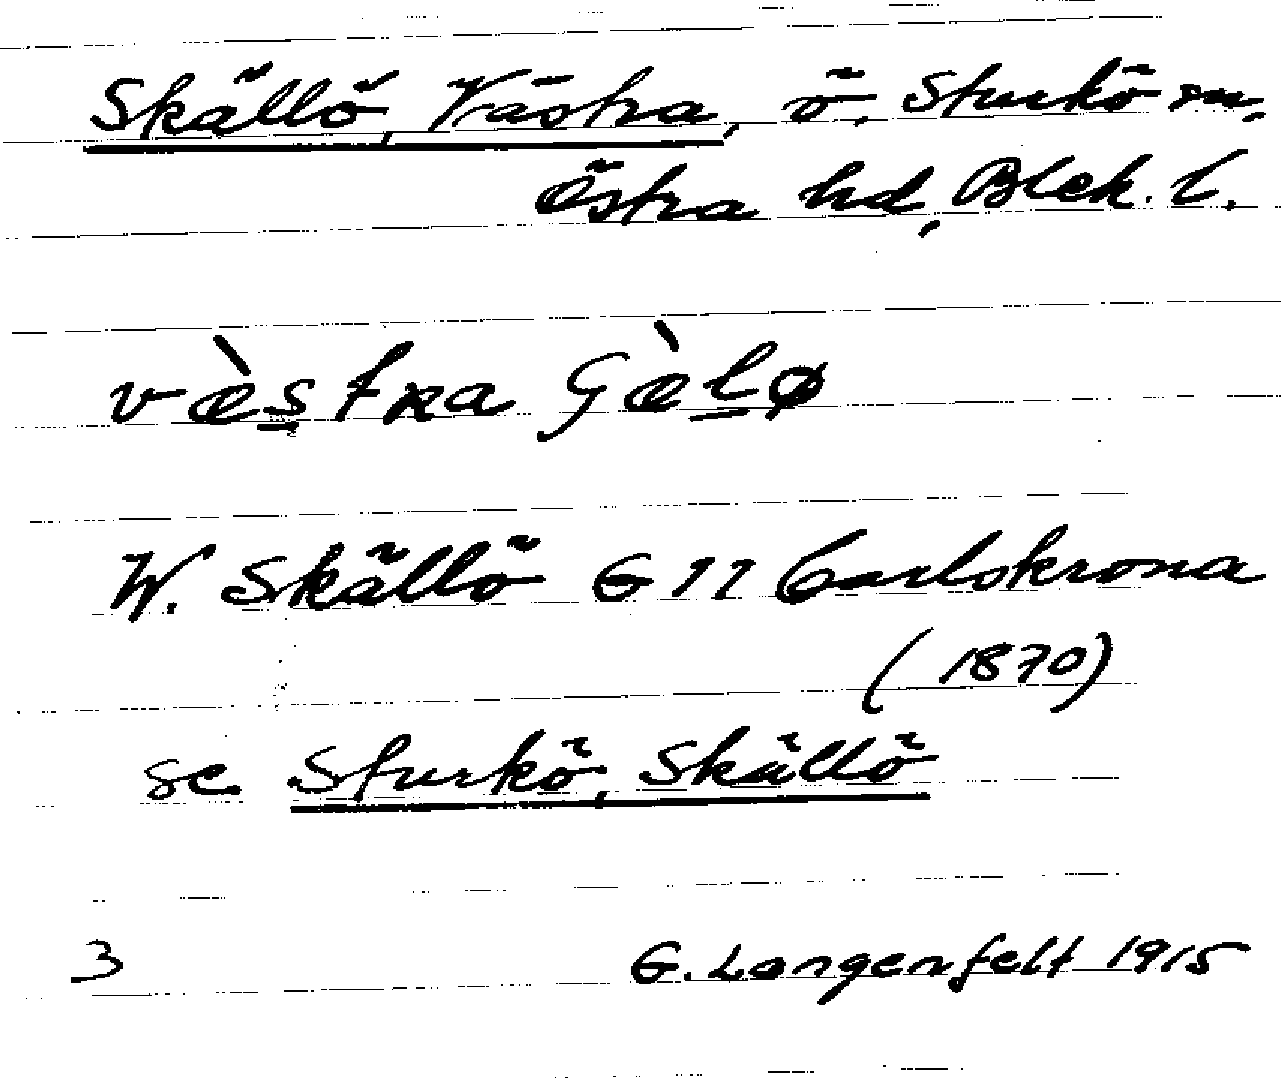 Skällö, Västra, ö, Sturkö sn,
Östra hd, Blek. l.
væ̀stra ʃæ̀lø
W. Skällö G 11 Carlskrona
(1870)
se Sturkö, Skällö
3 G. Langenfelt 1915